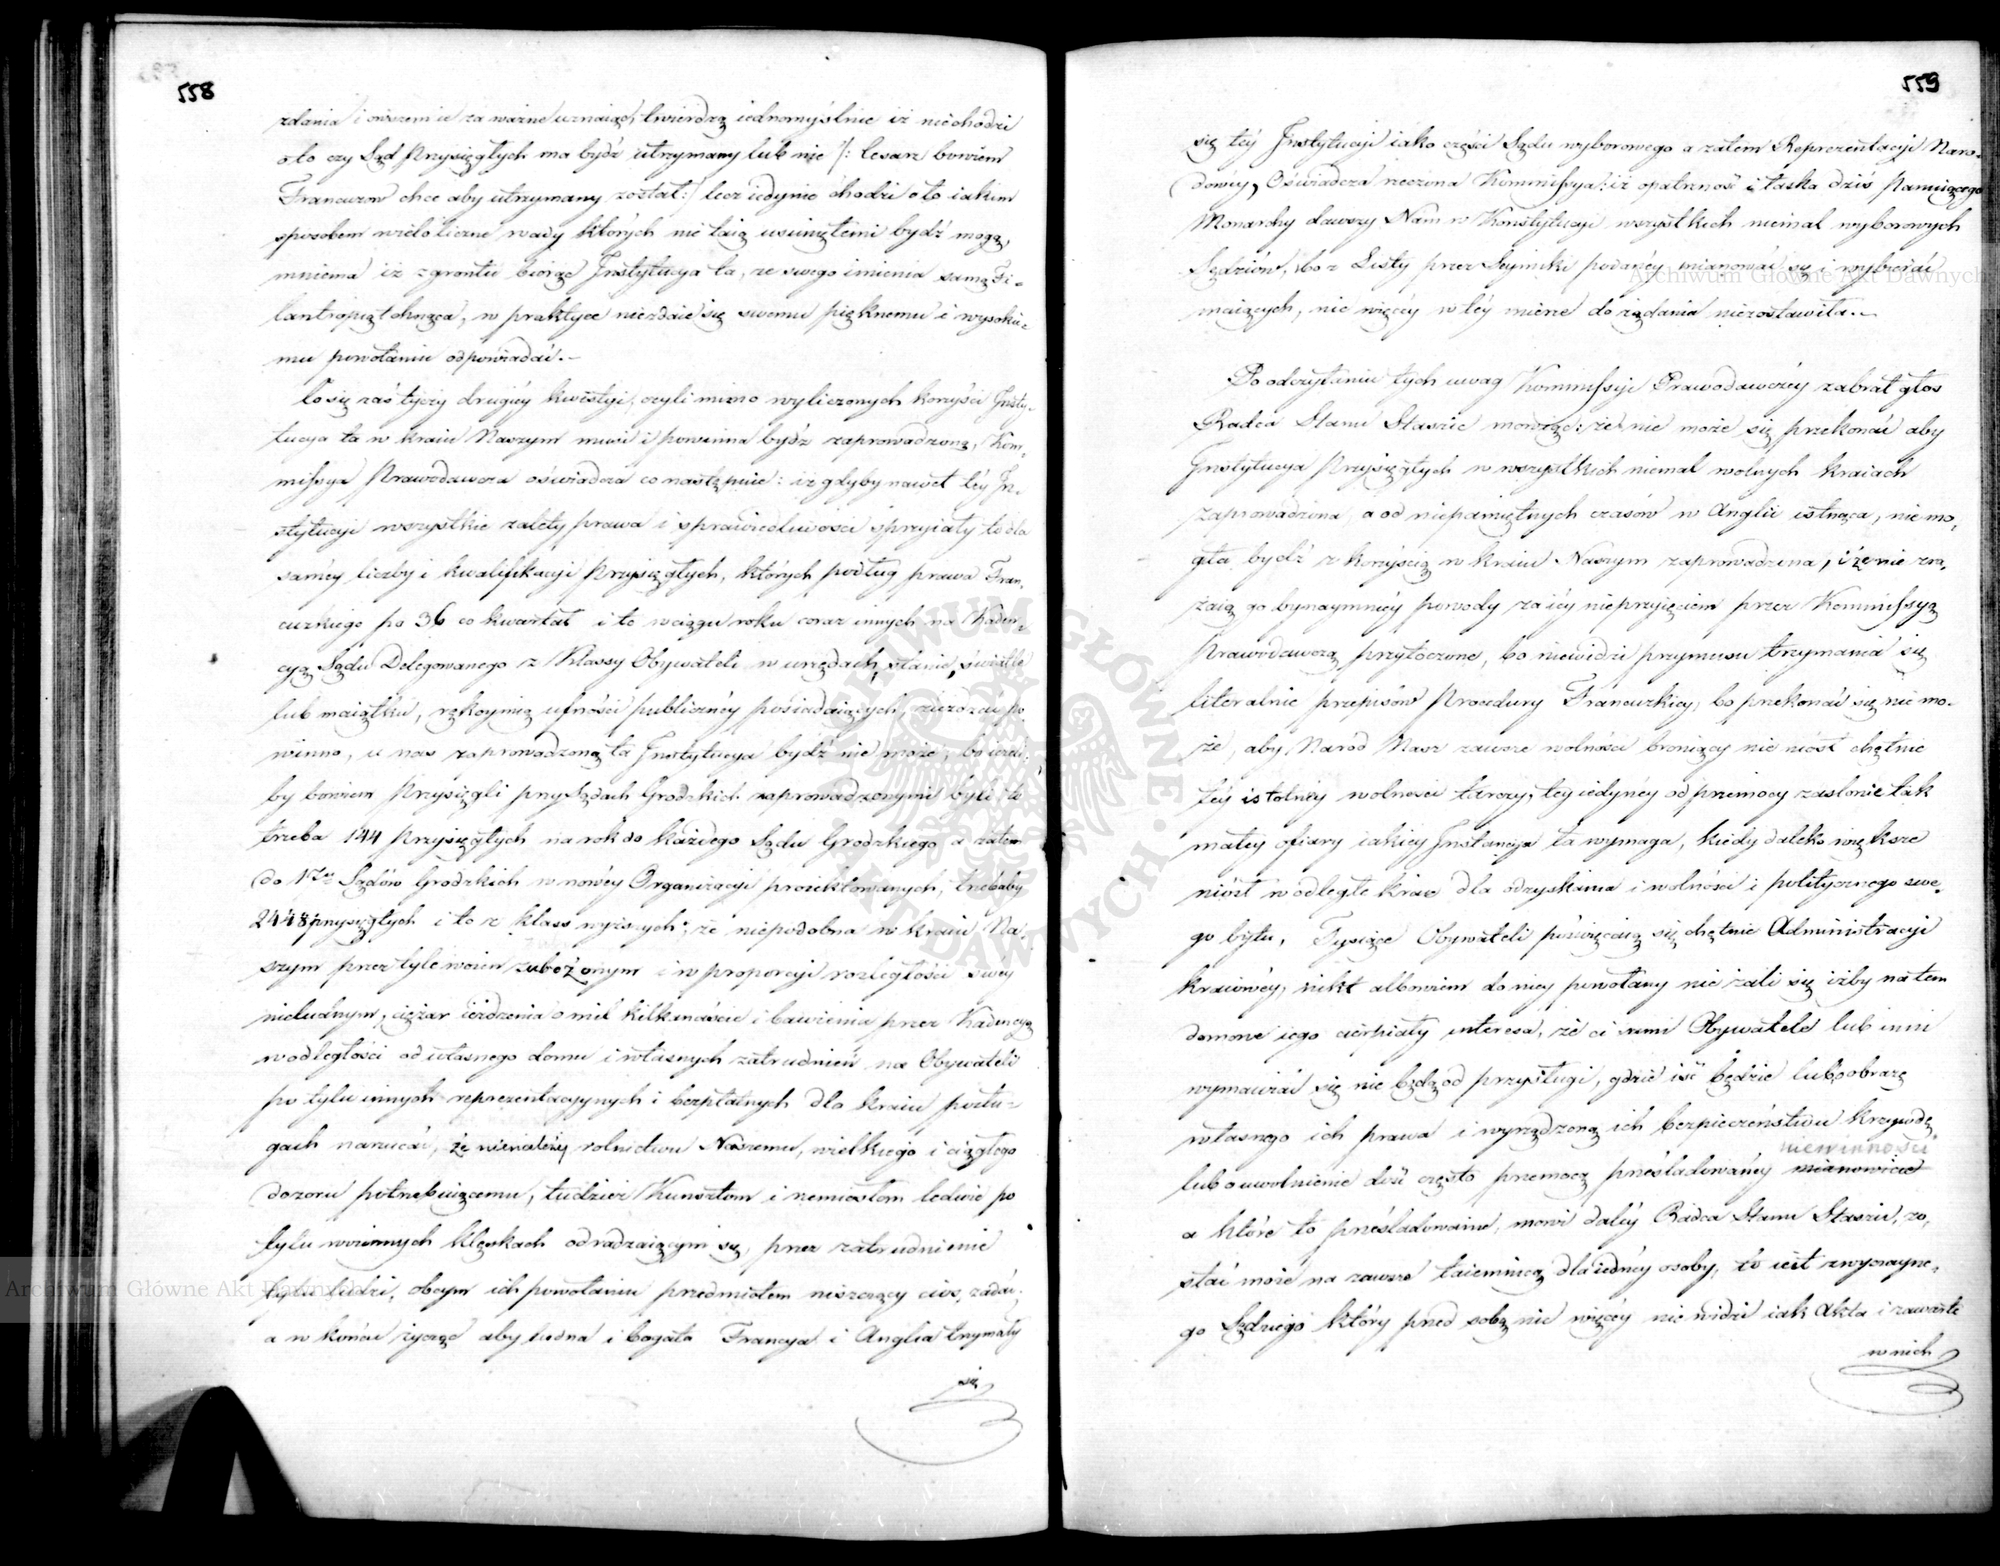 558
zdania i owszem ie za ważne uznaiąc, twierdzą iednomyślnie iż nie chodzi
oto czy Sąd Przysięgłych ma bydź utrzymany lub nie /: Cesarz bowiem
Francuzow chce aby utrzymany został :/ lecz iedynie chodzi o to iakim
sposobem wieloliczne wady których nie taią usuniętemi bydź mogą,
mniema iż z gruntu biorąc Instytucya ta, ze swego imienia samą Fi-
lantropią tchnąca, w praktyce niezdaie się swemu pięknemu i wysokie-
mu powołaniu odpowiadać.-
Co się zaś tyczy drugiey kwestyi, czyli mimo wyliczonych korzyści Insty-
tucya ta w kraiu Naszym musi i powinna bydź zaprowadzoną, Kom-
missya Prawodawcza oświadcza co następuie: iż gdyby nawet tey In-
stytucyi wszystkie zalety prawa i sprawiedliwości sprzyiały to dla
samey liczby i kwalifikacyi Przysięgłych, których podług prawa Fran-
cuzkiego po 36 co kwartał i to w ciągu roku coraz innych na Kaden-
cyą Sądu Delegowanego z Klassy Obywateli w urzędach, stanie, świetle
lub maiątku, rękoymią ufności publiczney posiadaiących, zieżdzać po-
winno, u nas zaprowadzoną ta Instytucya bydź nie może, bo ieże-
by bowiem Przysięgli przy Sądach Grodzkich zaprowadzonymi byli to
trzeba 144 Przysięgłych na rok do każdego Sądu Grodzkiego a zatem
do 17tu Sądów Grodzkich w nowey Organizacyi proiektowanych, trzebaby
2448 przysięgłych i to z klass wyższych, że niepodobna w kraiu Na-
szym przez tyle woien zubożonym i w proporcyi rozległości swey
nieludnym, ciężar ieżdzenia o mil kilkanaście i bawienia przez Kadencyą
w odległości od własnego domu i własnych zatrudnień na Obywateli
po tylu innych reprezentacyynych i bezpłatnych dla kraiu posłu-
gach narzucać, że nienależy rolnictwu Naszemu, wielkiego i ciągłego
dozoru potrzebuiącemu, tudzież Kunsztom i rzemiosłom ledwie po
tylu woiennych klęskach odradzaiącym się, przez zatrudnienie
tylu ludzi, obcym ich powołaniu przedmiotem niszczący cios zadać,
a w końcu życząc aby ludna i bogata Francya i Anglia trzymały
się
559
się tey Instytucyi iako części Sądu wyborowego a zatem Reprezentacyi Naro-
dowey, Oświadcza rzeczona Kommissya: iż opatrzność i łaska dziś Panuiącego
Monarchy dawszy Nam w Konstytucyi wszystkich niemal wyborowych
Sędziów, bo z Listy przez Seymiki podaney mianować się i wybierać
maiących, nic więcey w tey mierze do żądania niezostawiła.-
Po odczytaniu tych uwag Kommissyi Prawodawczey zabrał głos
Radca Stanu Staszic mówiąc: że nie może się przekonać aby
Instytucya Przysięgłych w wszystkich niemal wolnych kraiach
zaprowadzona, a od niepamiętnych czasów w Anglii istnąca, nie mo-
gła bydź z korzyścią w kraiu Naszym zaprowadzona, i że nie zra-
żaią go bynaymniey powody za iey nieprzyięciem przez Kommissyą
Prawodawczą przytoczone, bo niewidzi przymusu trzymania się
literalnie przepisów Procedury Francuzkiey, bo przekonać się nie mo-
że, aby Naród Nasz zawsze wolności broniący nie niósł chętnie
tey istotney wolności tarczy, tey iedyney od przemocy zasłonie tak
małey ofiary iakiey Instancyja ta wymaga, kiedy daleko większe
niósł w odległe kraie dla odzyskania i wolności i politycznego swe-
go bytu, Tysiące Obywateli poświęcaią się chętnie Administracyi
kraiowey, nikt albowiem do niey powołany nie żali się iżby na tem
domowe iego cierpiały interesa, że ci sami Obywatele lub inni
wymawiać się nie będą od przysługi, gdzie iść będzie lub o obrazę
własnego ich prawa i wyrządzoną ich bezpieczeństwu krzywdę
niewinności
lub o uwolnienie dość często przemocą prześladowaney mianowicie
a które to prześladowanie, mówi daley Radca Stanu Staszic, zo-
stać może na zawsze taiemnicą dla iedney osoby, to iest zwyczayne-
go Sędziego który przed sobą nic więcey nie widzi iak Akta i zawarte
w nich